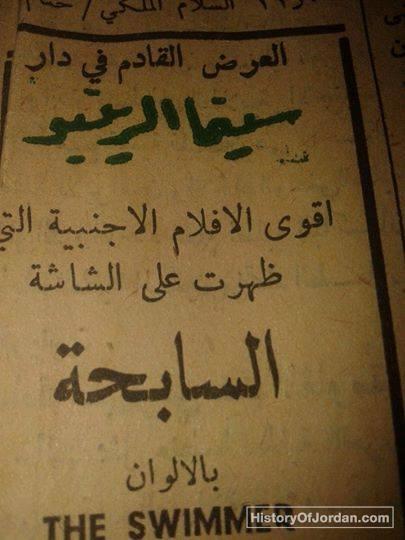 السلام الملكي /
العرض القادم في دار
سينما
اقوى الافلام الاجنبية التي
ظهرت على الشاشة
السابحة
بالالوان
THE SWIMMER
HistoryOfJordan.com